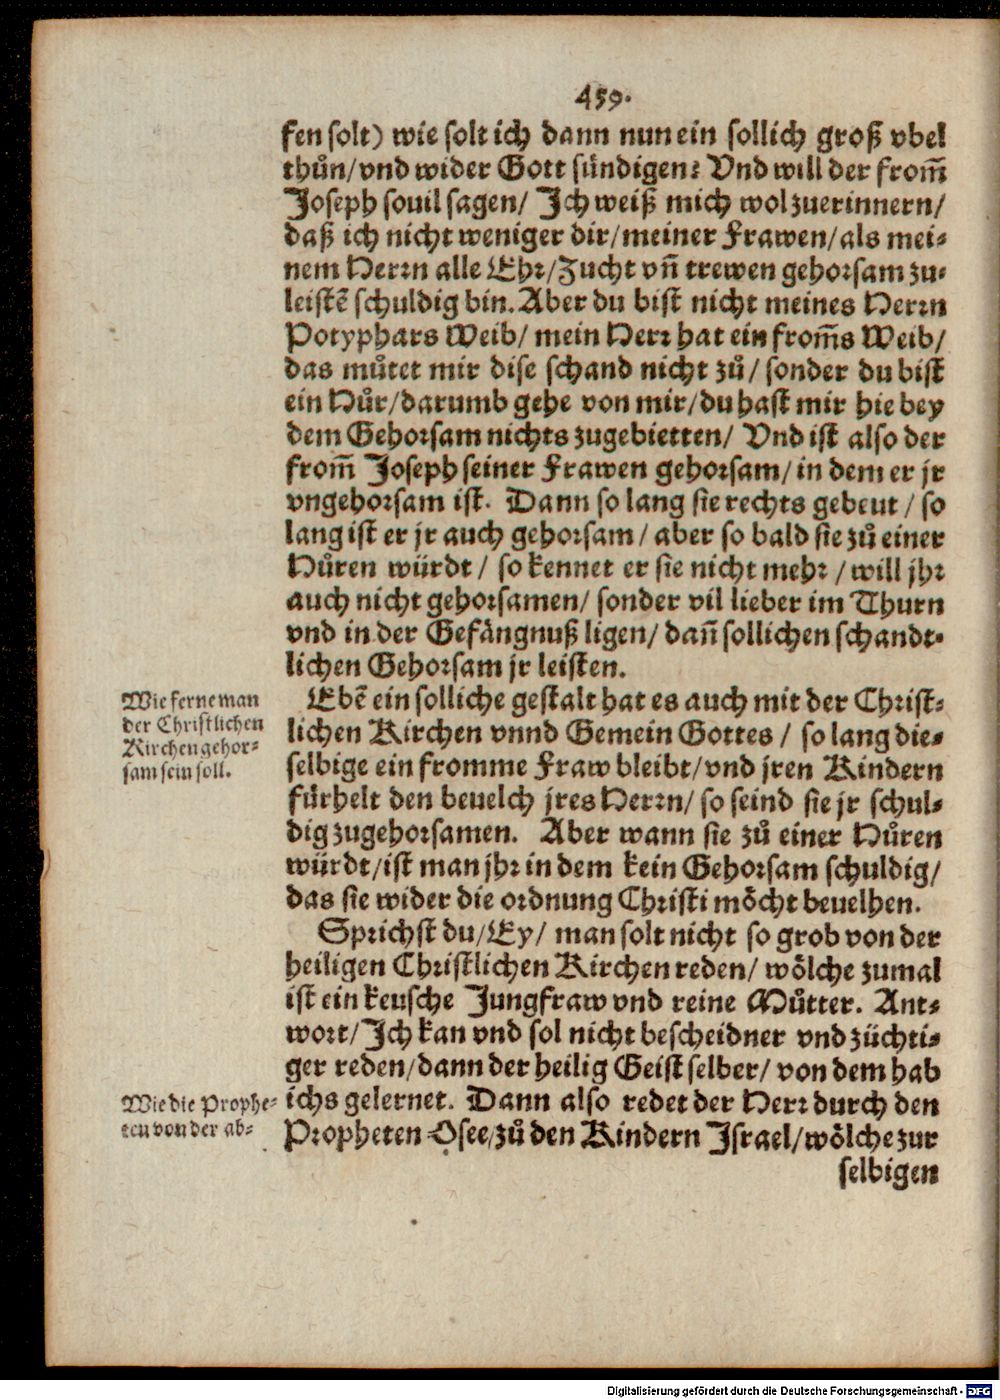 459.
fen solt) wie solt ich dann nun ein sollich groß vbel
thůn/vnd wider Gott sündigen? Vnd will der from̃
Joseph souil sagen/ Ich weiß mich wol zuerinnern/
daß ich nicht weniger dir/meiner Frawen/als mei-
nem Herrn alle Ehr/Zucht vñ trewen gehorsam zu-
leistẽ schuldig bin. Aber du bist nicht meines Herrn
Potyphars Weib/ mein Herr hat ein from̃s Weib/
das můtet mir dise schand nicht zů/ sonder du bist
ein Hůr/darumb gehe von mir/du hast mir hie bey
dem Gehorsam nichts zugebietten/ Vnd ist also der
from̃ Joseph seiner Frawen gehorsam/in dem er jr
vngehorsam ist. Dann so lang sie rechts gebeut / so
lang ist er jr auch gehorsam / aber so bald sie zů einer
Hůren würdt / so kennet er sie nicht mehr / will jhr
auch nicht gehorsamen/ sonder vil lieber im Thurn
vnd in der Gefängnuß ligen/ dañ sollichen schandt-
lichen Gehorsam jr leisten.
Wie ferne man
der Christlichen
Kirchen gehor-
sam sein soll.
Ebẽ ein solliche gestalt hat es auch mit der Christ-
lichen Kirchen vnnd Gemein Gottes / so lang die-
selbige ein fromme Fraw bleibt/vnd jren Kindern
fürhelt den beuelch jres Herrn/ so seind sie jr schul-
dig zugehorsamen. Aber wann sie zů einer Hůren
würdt/ist man jhr in dem kein Gehorsam schuldig/
das sie wider die ordnung Christi möcht beuelhen.
Sprichst du/Ey/ man solt nicht so grob von der
heiligen Christlichen Kirchen reden/ wölche zumal
ist ein keusche Jungfraw vnd reine Můtter. Ant-
wort/ Ich kan vnd sol nicht bescheidner vnd züchti-
ger reden/dann der heilig Geist selber/ von dem hab
ichs gelernet. Dann also redet der Herr durch den
Propheten Osee/zů den Kindern Israel/wölche zur
Wie die Prophe-
ten von der ab-
selbigen
Digitalisierung gefördert durch die Deutsche Forschungsgemeinschaft - DFG